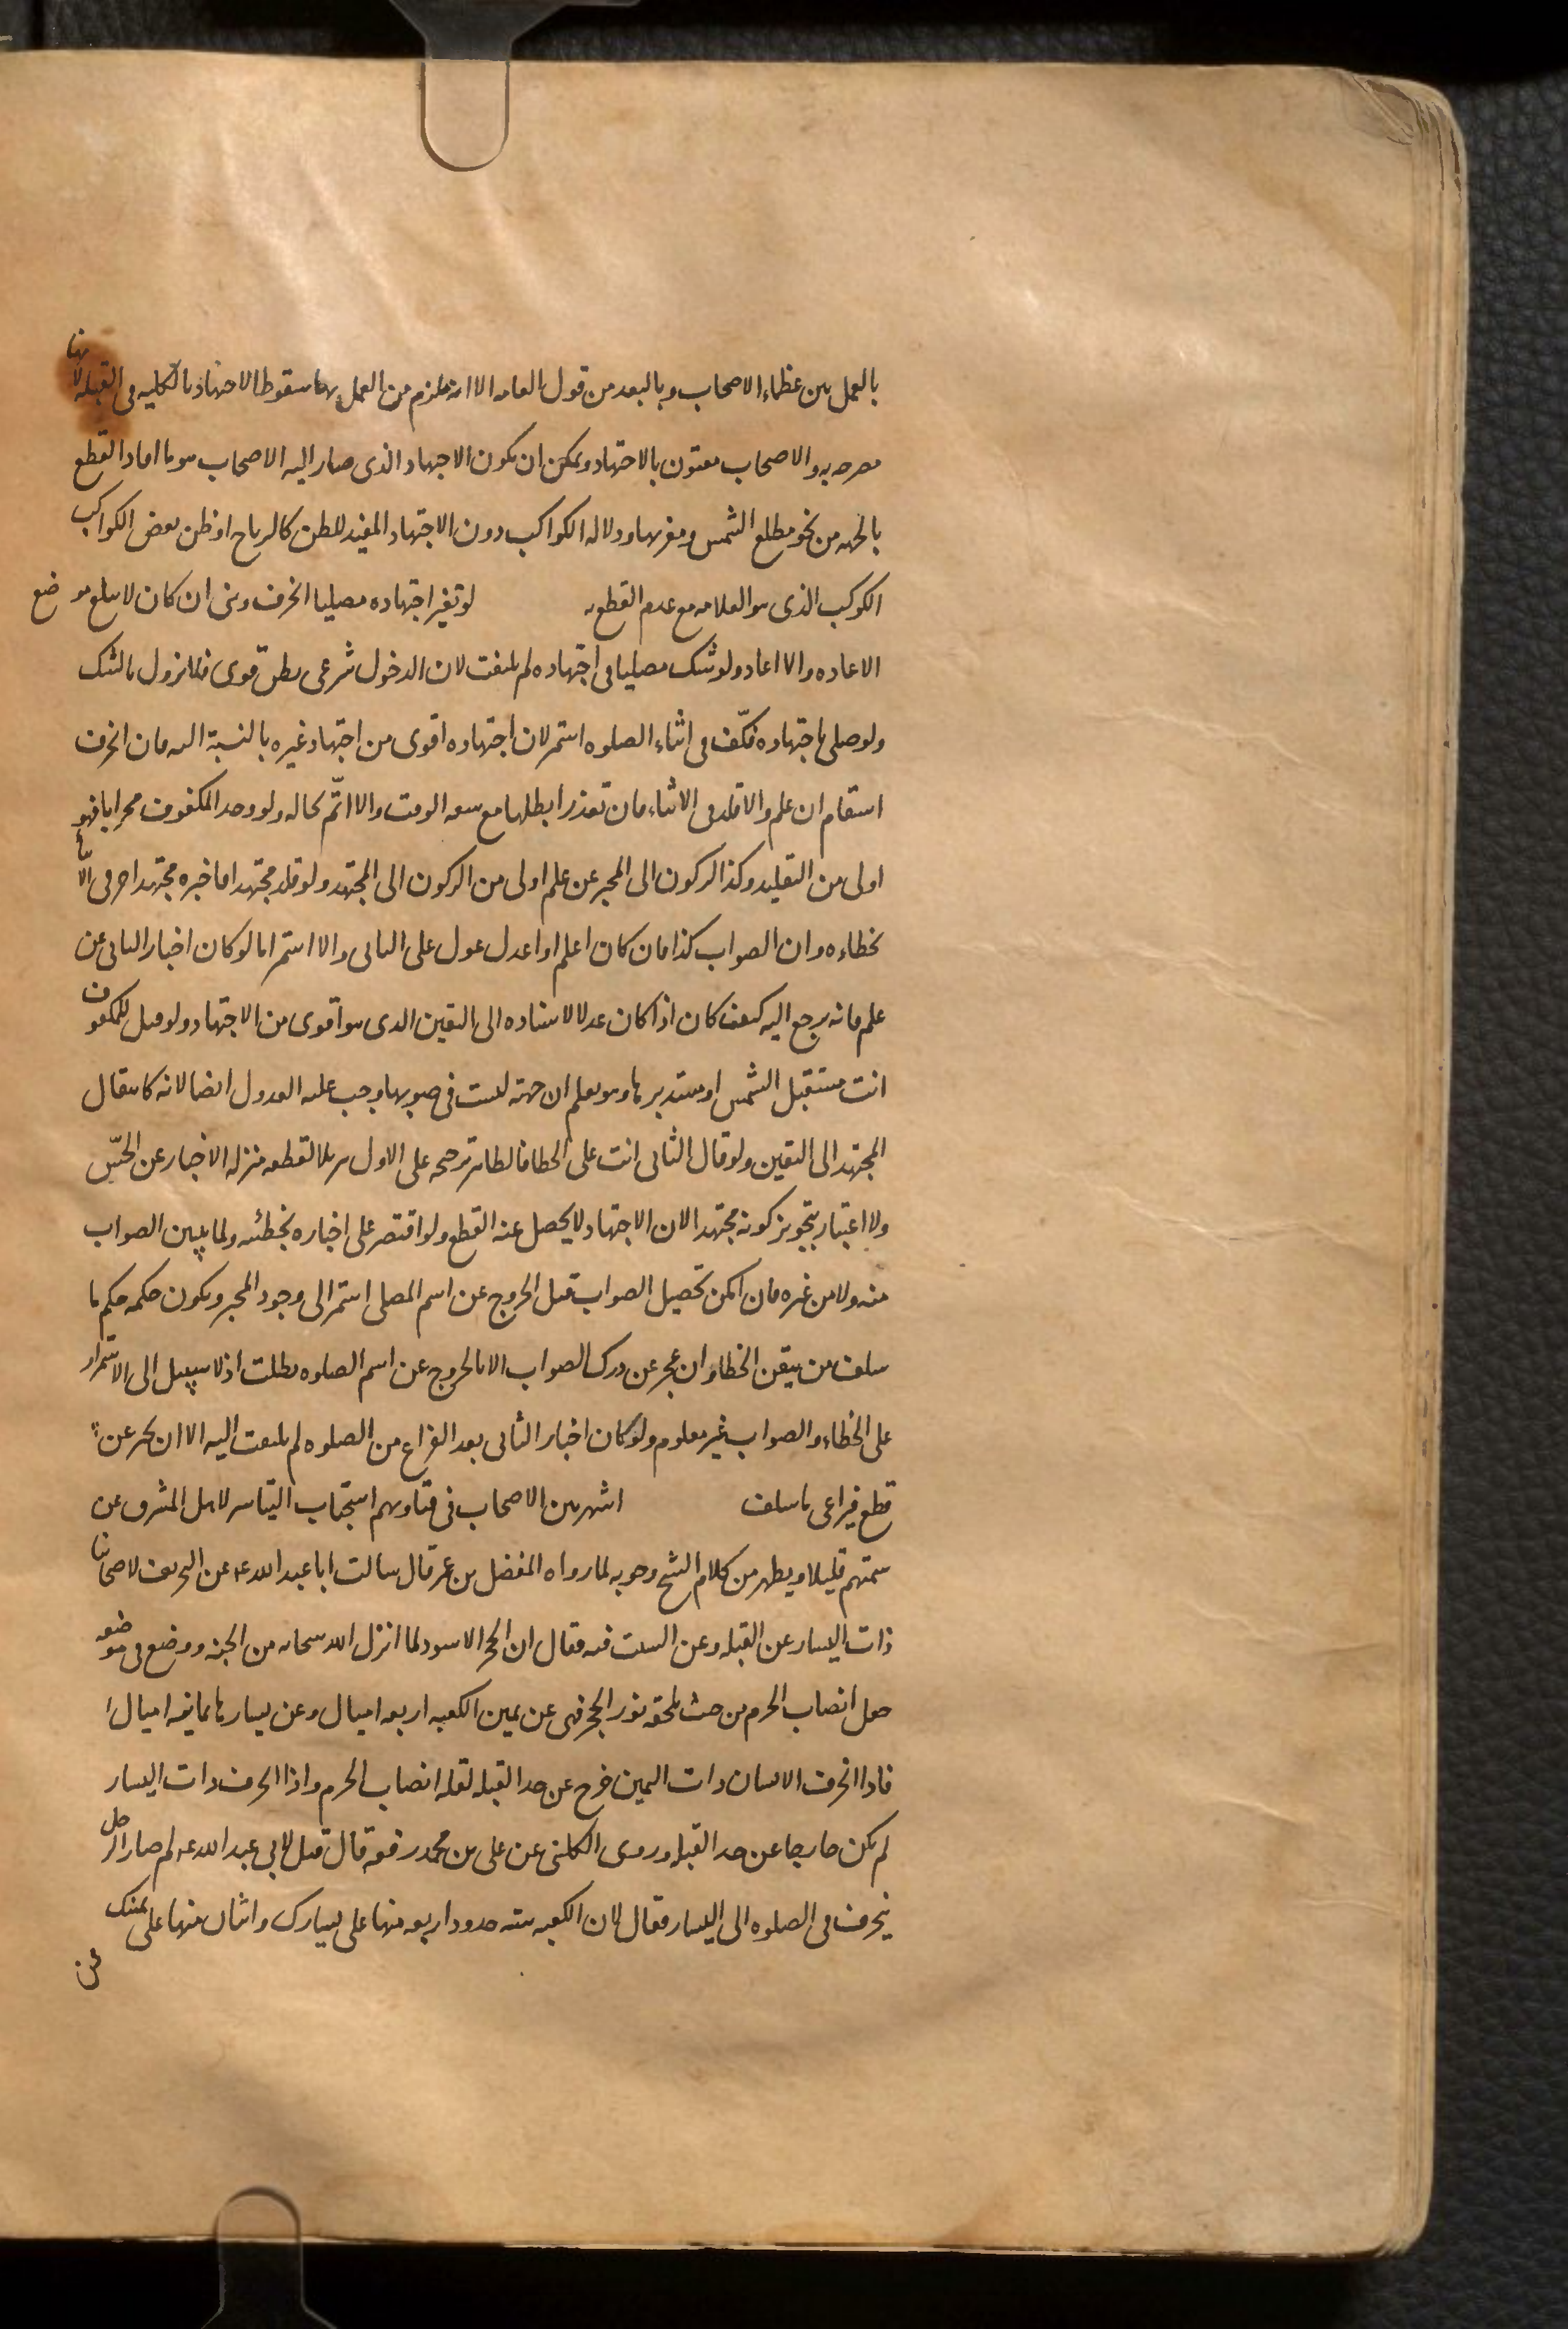 بالعمل بين عظماء الاصحاب وبالبعد من قول العامه الا انه يلزم من العمل بهما سقوط الاجتهاد بالكليه فى القبله لانها
مصرحه به والاصحاب مفتون بالاجتهاد ويمكن ان يكون الاجتهاد الذى صار اليه الاصحاب هو ما افاد القطع
بالجهه من نحو مطلع الشمس ومغربها ودلاله الكواكب دون الاجتهاد المفيد للظن كالرياح او ظن بعض الكواكب
الكوكب الذى هو العلامه مع عدم القطع به لو تغير اجتهاده مصليا انحرف وبنى ان كان لا يبلغ موضع
الاعاده والا اعاد ولو شك مصليا فى اجتهاده لم يلتفت لان الدخول شرعى بظن قوى فلا يزول بالشك
ولو صلى باجتهاده فكفّ فى اثناء الصلوه استمر لان اجتهاده اقوى من اجتهاد غيره بالنسبة اليه فان انحرف
استقام ان علم والا قلد فى الاثناء فان تعذر ابطلها مع سعه الوقت والا اتمّ بحاله ولو وجد المكفوف محرابا فهو
اولى من التقليد وكذا الركون الى المخبر عن علم اولى من الركون الى المجتهد ولو قلد مجتهدا فاخبره مجتهد اخر فى الاثناء
بخطاءه وان الصواب كذا فان كان اعلم او اعدل عول على الثانى والا استمر اما لو كان اخبار الثانى عن
علم فانه يرجع اليه كيف كان اذا كان عدلا لاستناده الى اليقين الذى هو اقوى من الاجتهاد ولو قيل للمكفوف
انت مستقبل الشمس او مستدبرها وهو يعلم ان جهته ليست فى صوبها وجب عليه العدول ايضا لانه كانتقال
المجتهد الى اليقين ولو قال الثانى انت على الخطا فالظاهر ترجحه على الاول تنزيلا لقطعه منزله الاخبار عن الحسّ
ولا اعتبار بتجويز كونه مجتهدا لان الاجتهاد لا يحصل عنه القطع ولو اقتصر على اخباره بخطئه ولما يبين الصواب
منه ولا من غيره فان امكن تحصيل الصواب قبل الخروج عن اسم المصلى استمر الى وجود المخبر ويكون حكمه حكم ما
سلف من تيقن الخطا وان عجز عن درك الصواب الا بالخروج عن اسم الصلوه بطلت اذ لا سبيل الى الاستمرار
على الخطاء والصواب غير معلوم ولو كان اخبار الثانى بعد الفراغ من الصلوه لم يلتفت اليه الا ان يخبر عن
قطع فيراعى ما سلف اشهر بين الاصحاب فى فتاويهم استحباب التياسر لاهل المشرق عن
سمتهم قليلا ويظهر من كلام الشيخ وجوبه لما رواه المفضل بن عمر قال سالت ابا عبد الله ع عن التحريف لاصحابنا
ذات اليسار عن القبله وعن السبب فيه فقال ان الحجر الاسود لما انزل الله سبحانه من الجنه ووضع فى موضعه
جعل انصاب الحرم من حيث لحقه نور الحجر فهى عن يمين الكعبه اربعه اميال وعن يسارها ثمانيه اميال
فاذا انحرف الانسان ذات اليمين خرج عن حد القبله لقله انصاب الحرم واذا انحرف ذات اليسار
لم يكن خارجا عن حد القبله وروى الكلينى عن على بن محمد رفعه قال قيل لابى عبد الله ع لم صار الرجل
ينحرف فى الصلوه الى اليسار فقال لان الكعبه سته حدود اربعه منها على يسارك واثنان منها على يمينك